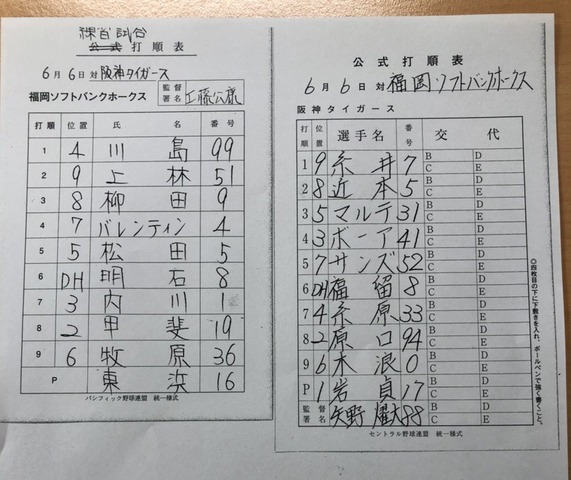 練習試合
公式打順表
6月6日対阪神タイガース
福岡ソフトバンクホークス 監督署名 工藤公康
打順 位置 氏 名 番号
1 4 川島 99
2 9 上林 51
3 8 柳田 9
4 7 バレンティン 4
5 5 松田 5
6 DH 明石 8
7 3 内川 1
8 2 甲斐 19
9 6 牧原 36
P 東浜 16
パシフィック野球連盟 統一様式
公式打順表
6月6日対福岡ソフトバンクホークス
阪神タイガース
打順 位置 選手名 番号 交代
1 9 糸井 7 B D C E
2 8 近本 5 B D C E
3 5 マルテ 31 B D C E
4 3 ボーア 41 B D C E
5 7 サンズ 52 B D C E
6 DH 福留 8 B D C E
7 4 糸原 33 B D C E
8 2 原口 94 B D C E
9 6 木浪 0 B D C E
P 1 岩貞 17 B D C E
監督署名 矢野燿大 88 B D C E
セントラル野球連盟 統一様式
◎四枚目の下に下敷きを入れ、ボールペンで強く書くこと。